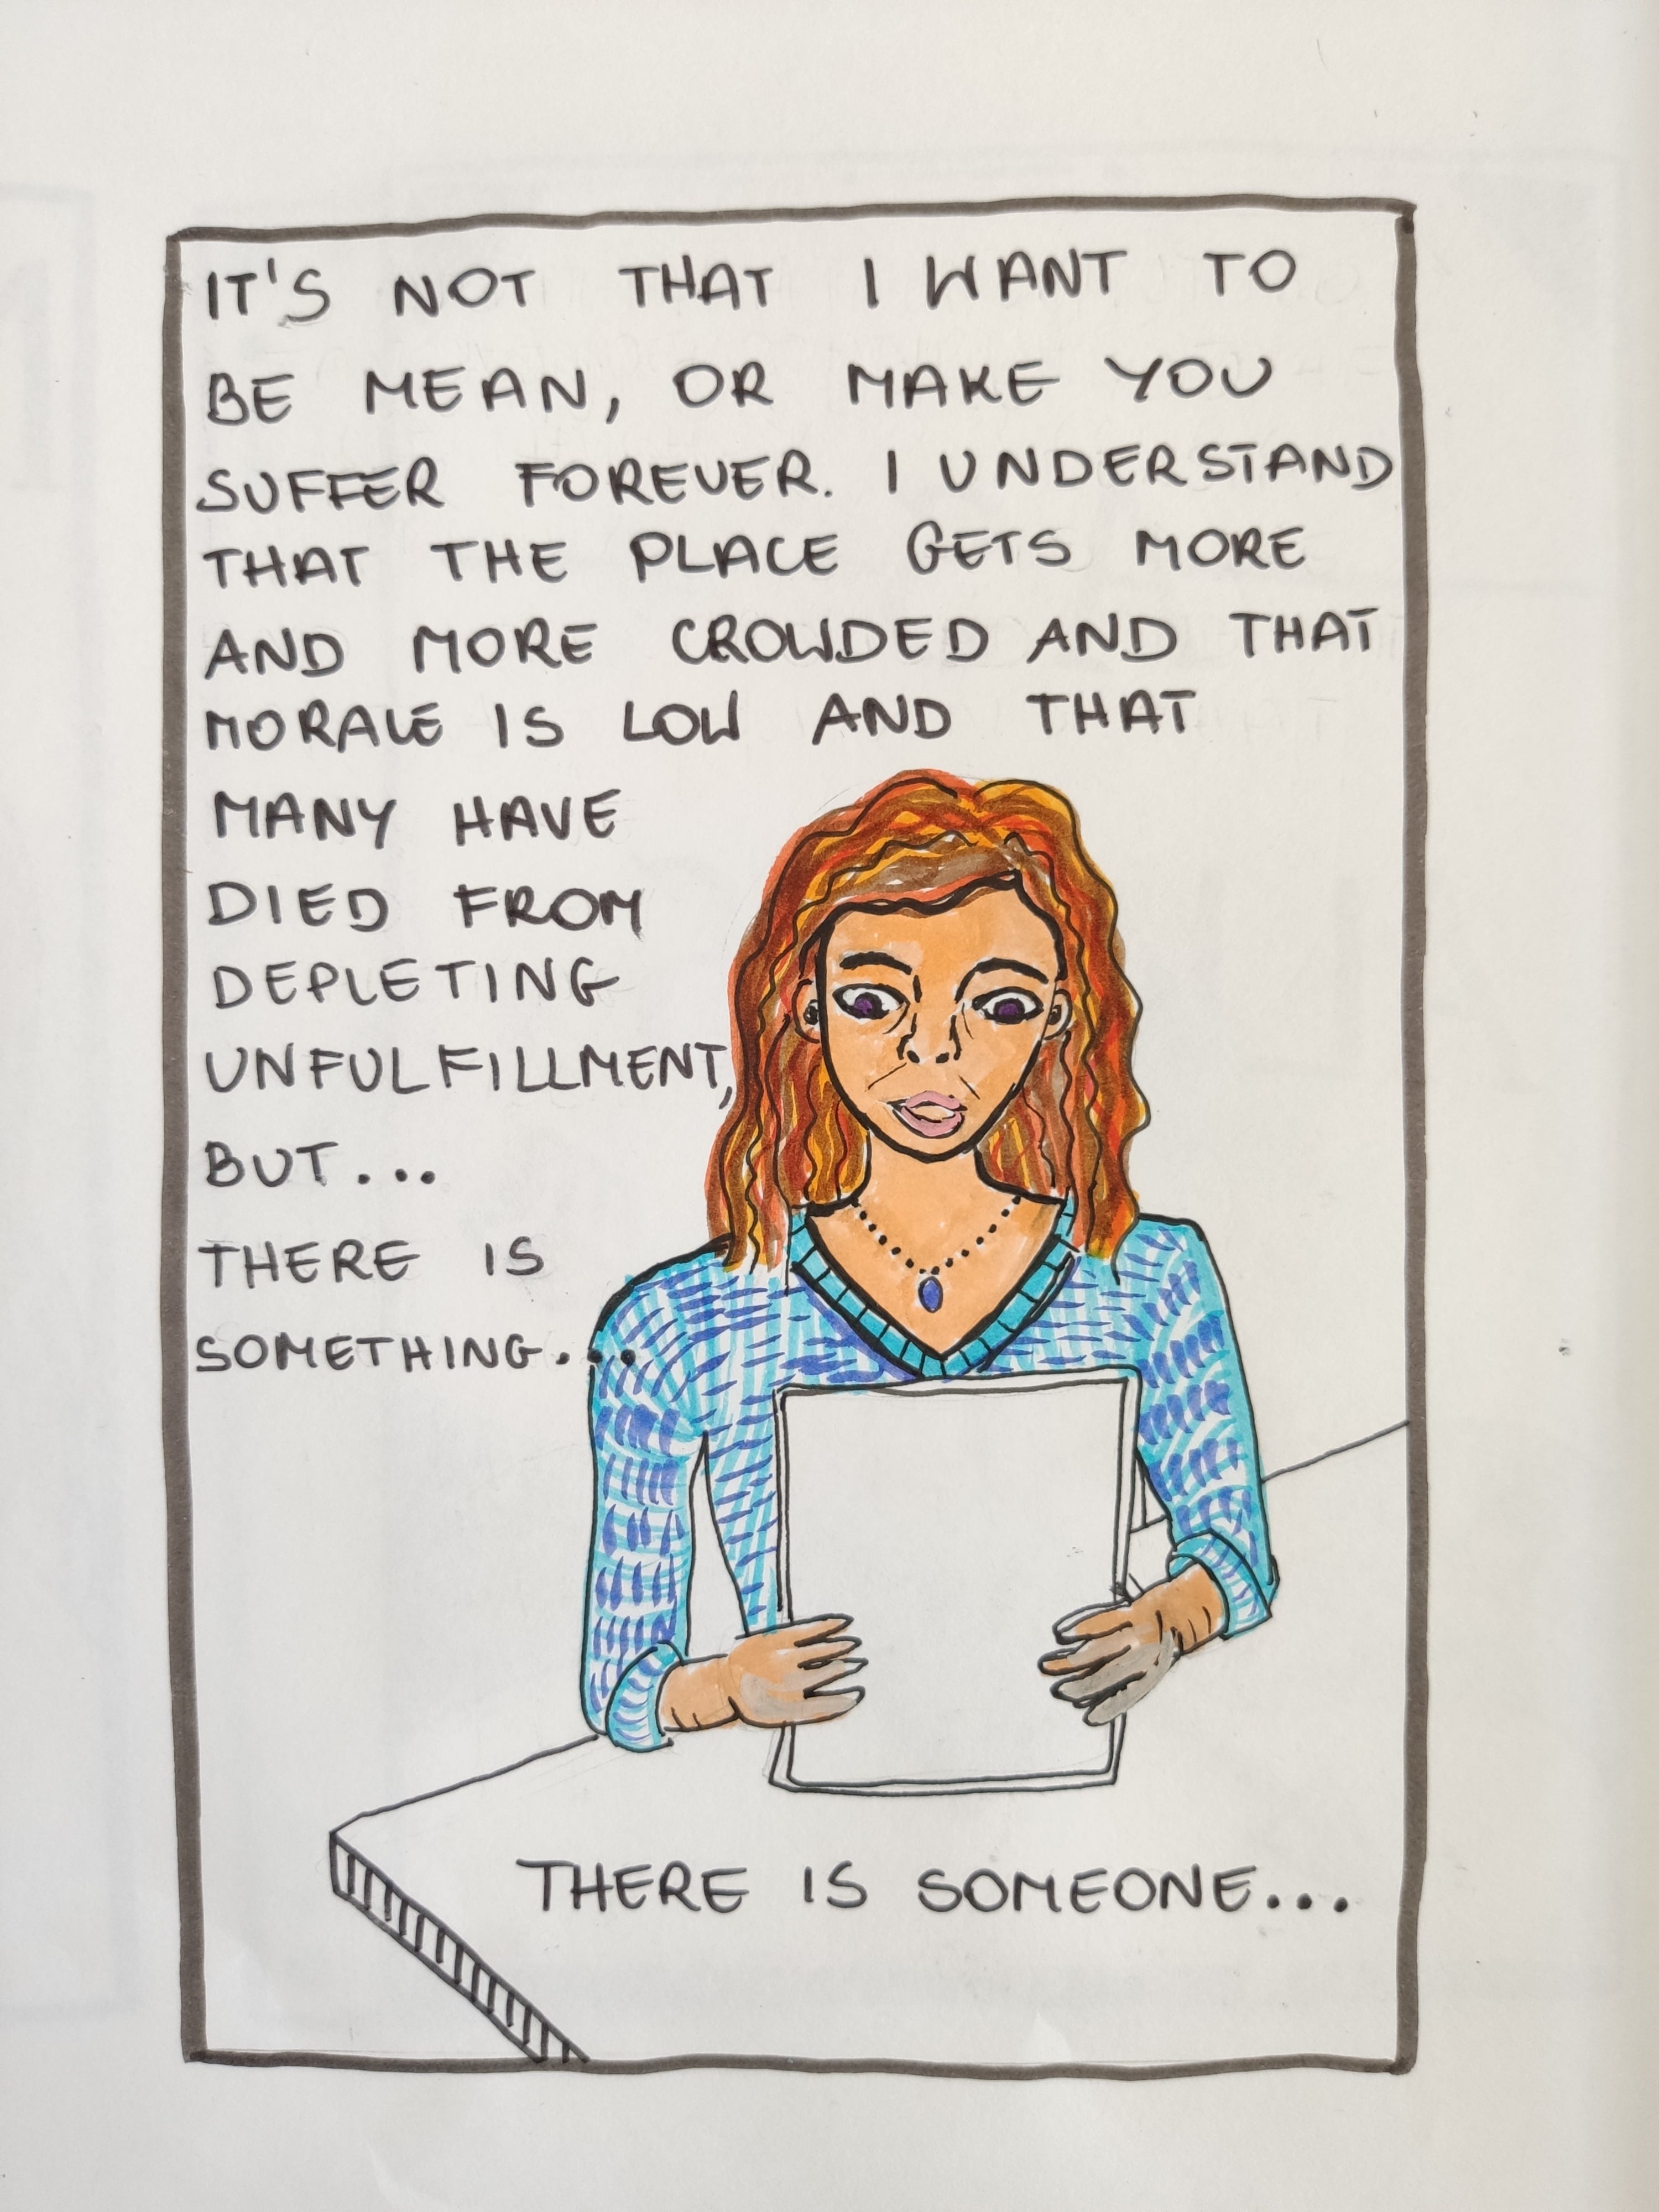 IT'S NOT THAT I WANT TO
BE MEAN, OR MAKE YOU
SUFFER FOREVER. I UNDERSTAND
THAT THE PLACE GETS MORE
AND MORE CROWDED AND THAT
MORALE IS LOW AND THAT
MANY HAVE
DIED FROM
DEPLETING
UNFULFILLMENT,
BUT...
THERE IS
SOMETHING...
THERE IS SOMEONE...